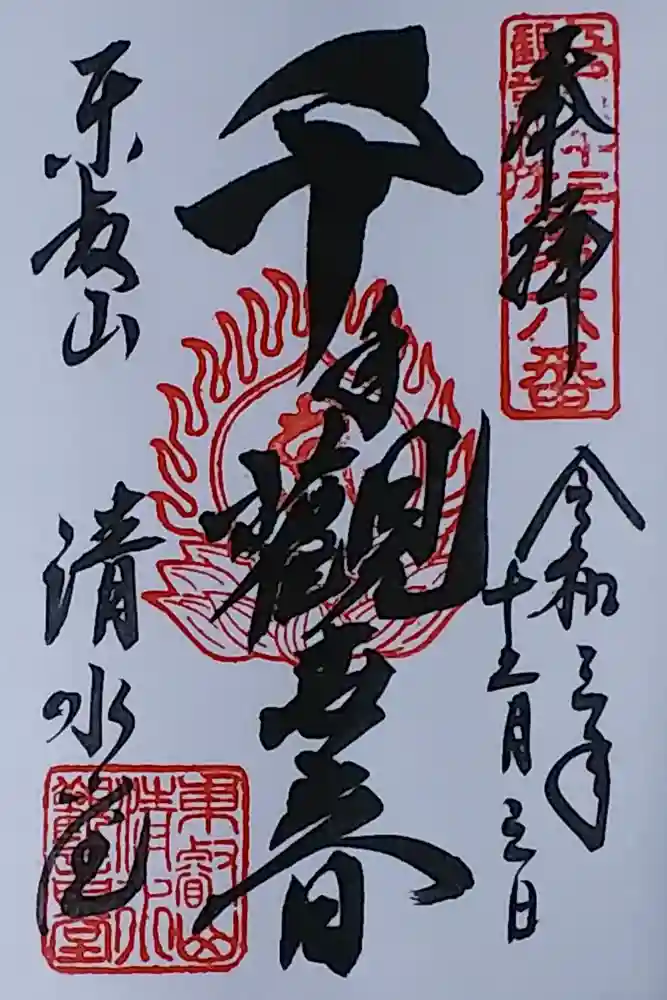 奉拝
江戸三十三
観音札所
第六番
令和三年
十二月三日
千手觀世音
東叡山
清水堂
東叡山
清水
觀音堂